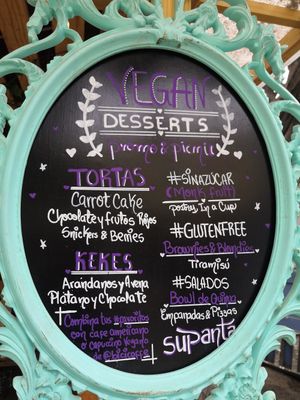 VEGAN
DESSERTS
promo & picnic
TORTAS
CARROT CAKE
Chocolate y frutos Rojos
Snickers & Berries
KEKES
Arándanos y Avena
Plátano y Chocolate
Combina tus #favoritos
con café americano
o capuccino vegano
#SINAZÚCAR
(Monk fruit)
postres In a Cup
#GLUTENFREE
Brownies & Blondies
Tiramisú
#SALADOS
Bowl de Quinua
Empanadas & Pizzas
supanta